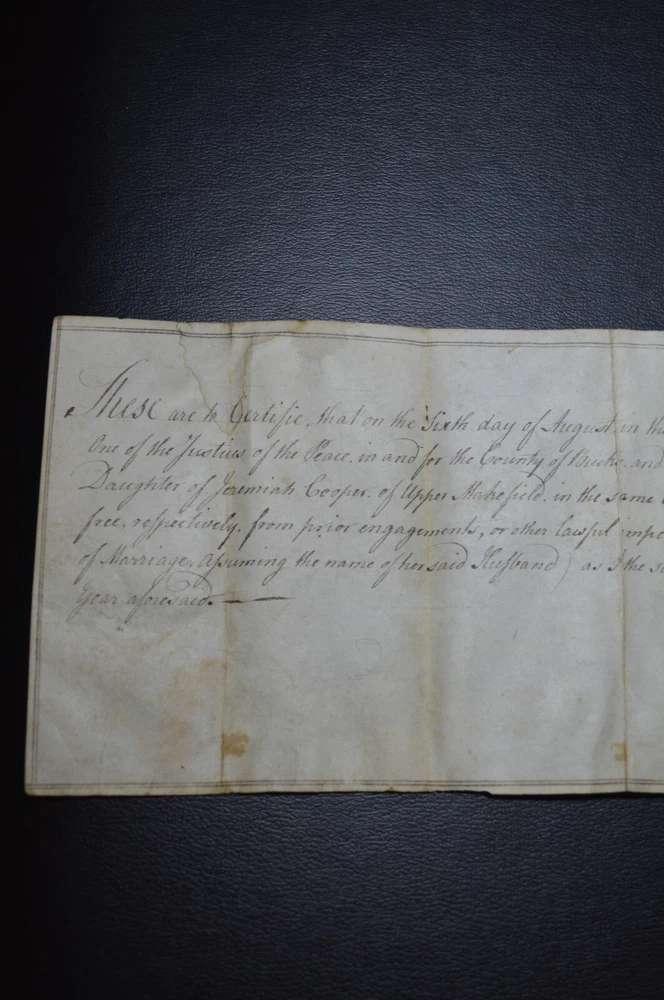 These are to Certifie, that on the Sixth day of August in th
One of the Justices of the Peace, in and for the County of Bucks, and
Daughter of Jeremiah Cooper, of Upper Makefield, in the same
free, respectively, from prior engagements, or other lawful impe
of Marriage, Assuming the name of her said Husband) as I the s
Year aforesaid.